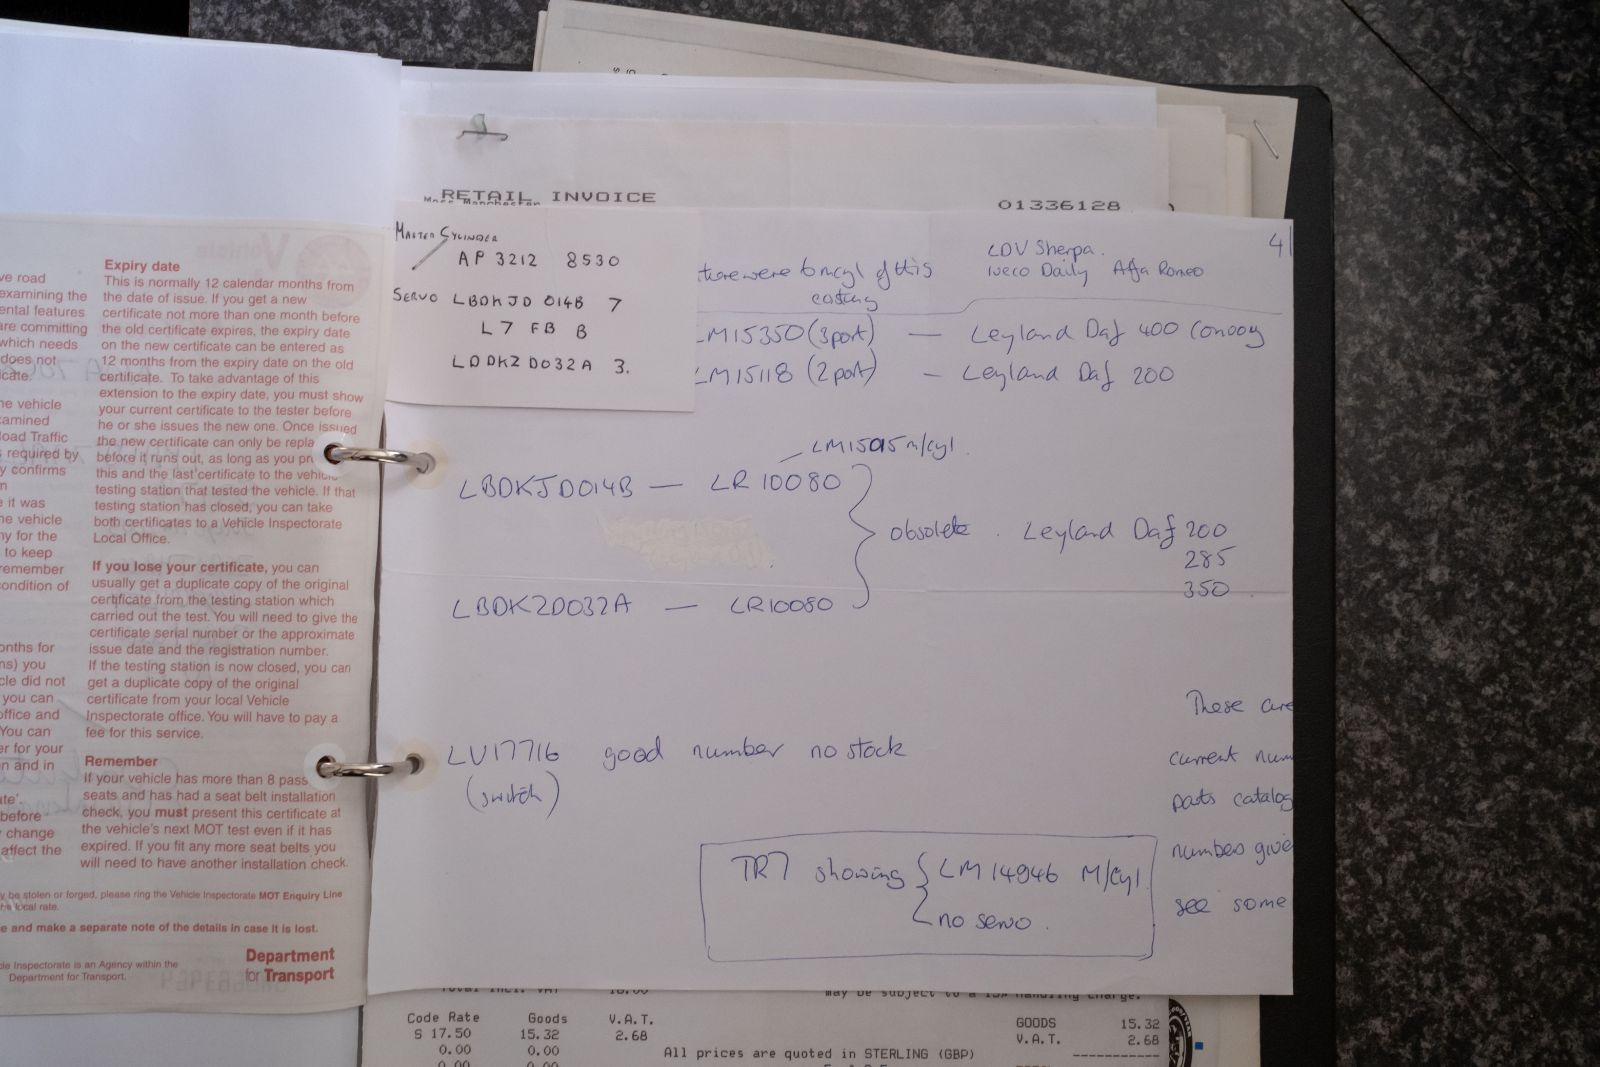 RETAIL INVOICE
01336128
Moss Manchester
MASTER CYLINDER
AP 3212 8530
SERVO LBDKJD 014B 7
L7 FB B
LDDKZ D032A 3.
4
there were 6 mcyl of this
casting
LDV Sherpa.
Iveco Daily Alfa Romeo
LM15350 (3port) — Leyland Daf 400 Convoy
LM15118 (2port) — Leyland Daf 200
m/cyl.
LBDKJD014B — LR10080
obsolete. Leyland Daf 200
285
350
LBDKZD032A — LR10080
LV17716 good number no stock
(switch)
TR7 showing { LM14946 M/cyl.
no servo.
These are
current num
parts catalog
numbers give
see some
ve road
examining the
ental features
are committing
which needs
does not
icate.
he vehicle
xamined
load Traffic
s required by
y confirms
n
e it was
ne vehicle
ny for the
to keep
remember
condition of
onths for
ns) you
cle did not
you can
office and
You can
er for your
n and in
ate'.
before
change
affect the
Expiry date
This is normally 12 calendar months from
the date of issue. If you get a new
certificate not more than one month before
the old certificate expires, the expiry date
on the new certificate can be entered as
12 months from the expiry date on the old
certificate. To take advantage of this
extension to the expiry date, you must show
your current certificate to the tester before
he or she issues the new one. Once issued
the new certificate can only be repla
before it runs out, as long as you pr
this and the last certificate to the vehicle
testing station that tested the vehicle. If that
testing station has closed, you can take
both certificates to a Vehicle Inspectorate
Local Office.
If you lose your certificate, you can
usually get a duplicate copy of the original
certificate from the testing station which
carried out the test. You will need to give the
certificate serial number or the approximate
issue date and the registration number.
If the testing station is now closed, you can
get a duplicate copy of the original
certificate from your local Vehicle
Inspectorate office. You will have to pay a
fee for this service.
Remember
If your vehicle has more than 8 pass
seats and has had a seat belt installation
check, you must present this certificate at
the vehicle's next MOT test even if it has
expired. If you fit any more seat belts you
will need to have another installation check.
y be stolen or forged, please ring the Vehicle Inspectorate MOT Enquiry Line
he local rate.
e and make a separate note of the details in case it is lost.
cle Inspectorate is an Agency within the
Department for Transport.
Department
for Transport
Total Incl. VAT 18.00
may be subject to a 15% handling charge.
Code Rate Goods V.A.T.
S 17.50 15.32 2.68
0.00 0.00
0.00 0.00
All prices are quoted in STERLING (GBP)
GOODS 15.32
V.A.T. 2.68